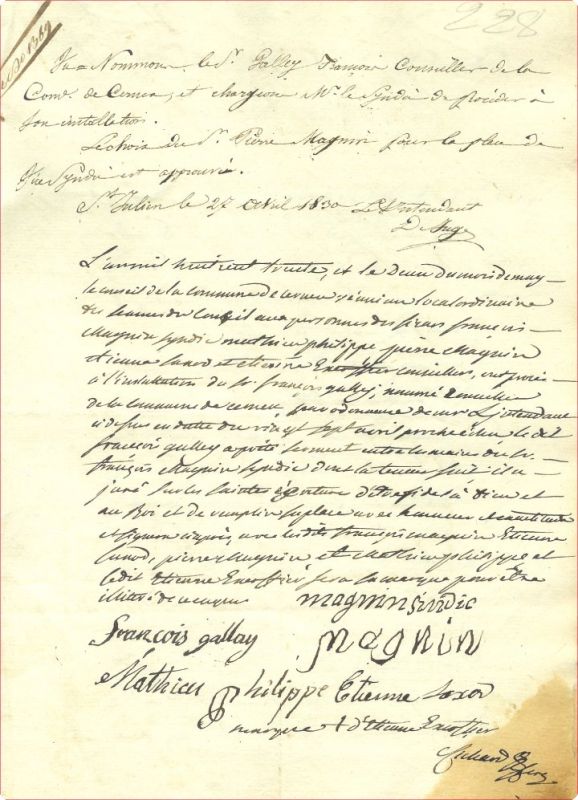 228
Nommons le Sr. Galley François Conseiller de la
Comne. de Cernex, et chargeons Mr. le Syndic de procéder à
son installation.
Le choix du Sr. Pierre Magnin pour la place de
Vice Syndic est approuvé.
St. Julien le 27 Avril 1830 L'Intendant
L'an mil huit cent trente, et le deux du mois de may
le conseil de la commune de cernex réuni au local ordinaire
des séances du Conseil aux personnes des sieurs francois
Magnin syndic mathieu philippe pierre Magnin
etienne et etienne conseillers, ont procédé
à l'installation du Sr. françois galley, nommé conseiller
de la commune de cernex, par ordonnance de
en datte du vingt sept avril proche échu le dit
francois galley a prêté serment entre les mains du Sr.
françois Magnin syndic dont la teneur suit il a
juré sur les saintes écritures d'être fidel à Dieu et
au Roi et de remplir sa place avec honneur et
et signeront avec les dits françois magnin Etienne
pierre Magnin et Mathieu philippe et
le dit Etienne fera sa marque pour être
illitéré de ce enquis
magnin sindic
François gallay magnin
Mathieu Philippe Etienne
marque + d'etienne